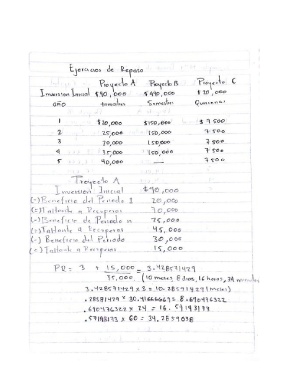 Ejercicios de Repaso
Proyecto A Proyecto B Proyecto C
Inversion Inicial $90,000 $490,000 $20,000
año Semestre Quincenas
1 $20,000 $150,000 $7500
2 25,000 150,000 7500
3 30,000 150,000 7500
4 35,000 7500
5 40,000 — 7500
Proyecto A
Inversion Inicial $90,000
(-) Beneficio del Periodo 1 20,000
(=) Faltante a Recuperar 70,000
(-) Beneficio de Periodo 25,000
(=) Faltante a Recuperar 45,000
(-) Beneficio del Periodo 30,000
(=) Faltante a Recuperar 15,000
PR = 3 + 15,000 = 3.428571429
35,000 (10 meses, 8 dias, 16 horas, 34 minutos
3.428571429 x 3 = 10.28571429 (meses)
.28571429 x 30.41666667 = 8.690476322
.690476322 x 24 = 16.57143173
.57143173 x 60 = 34.2859038